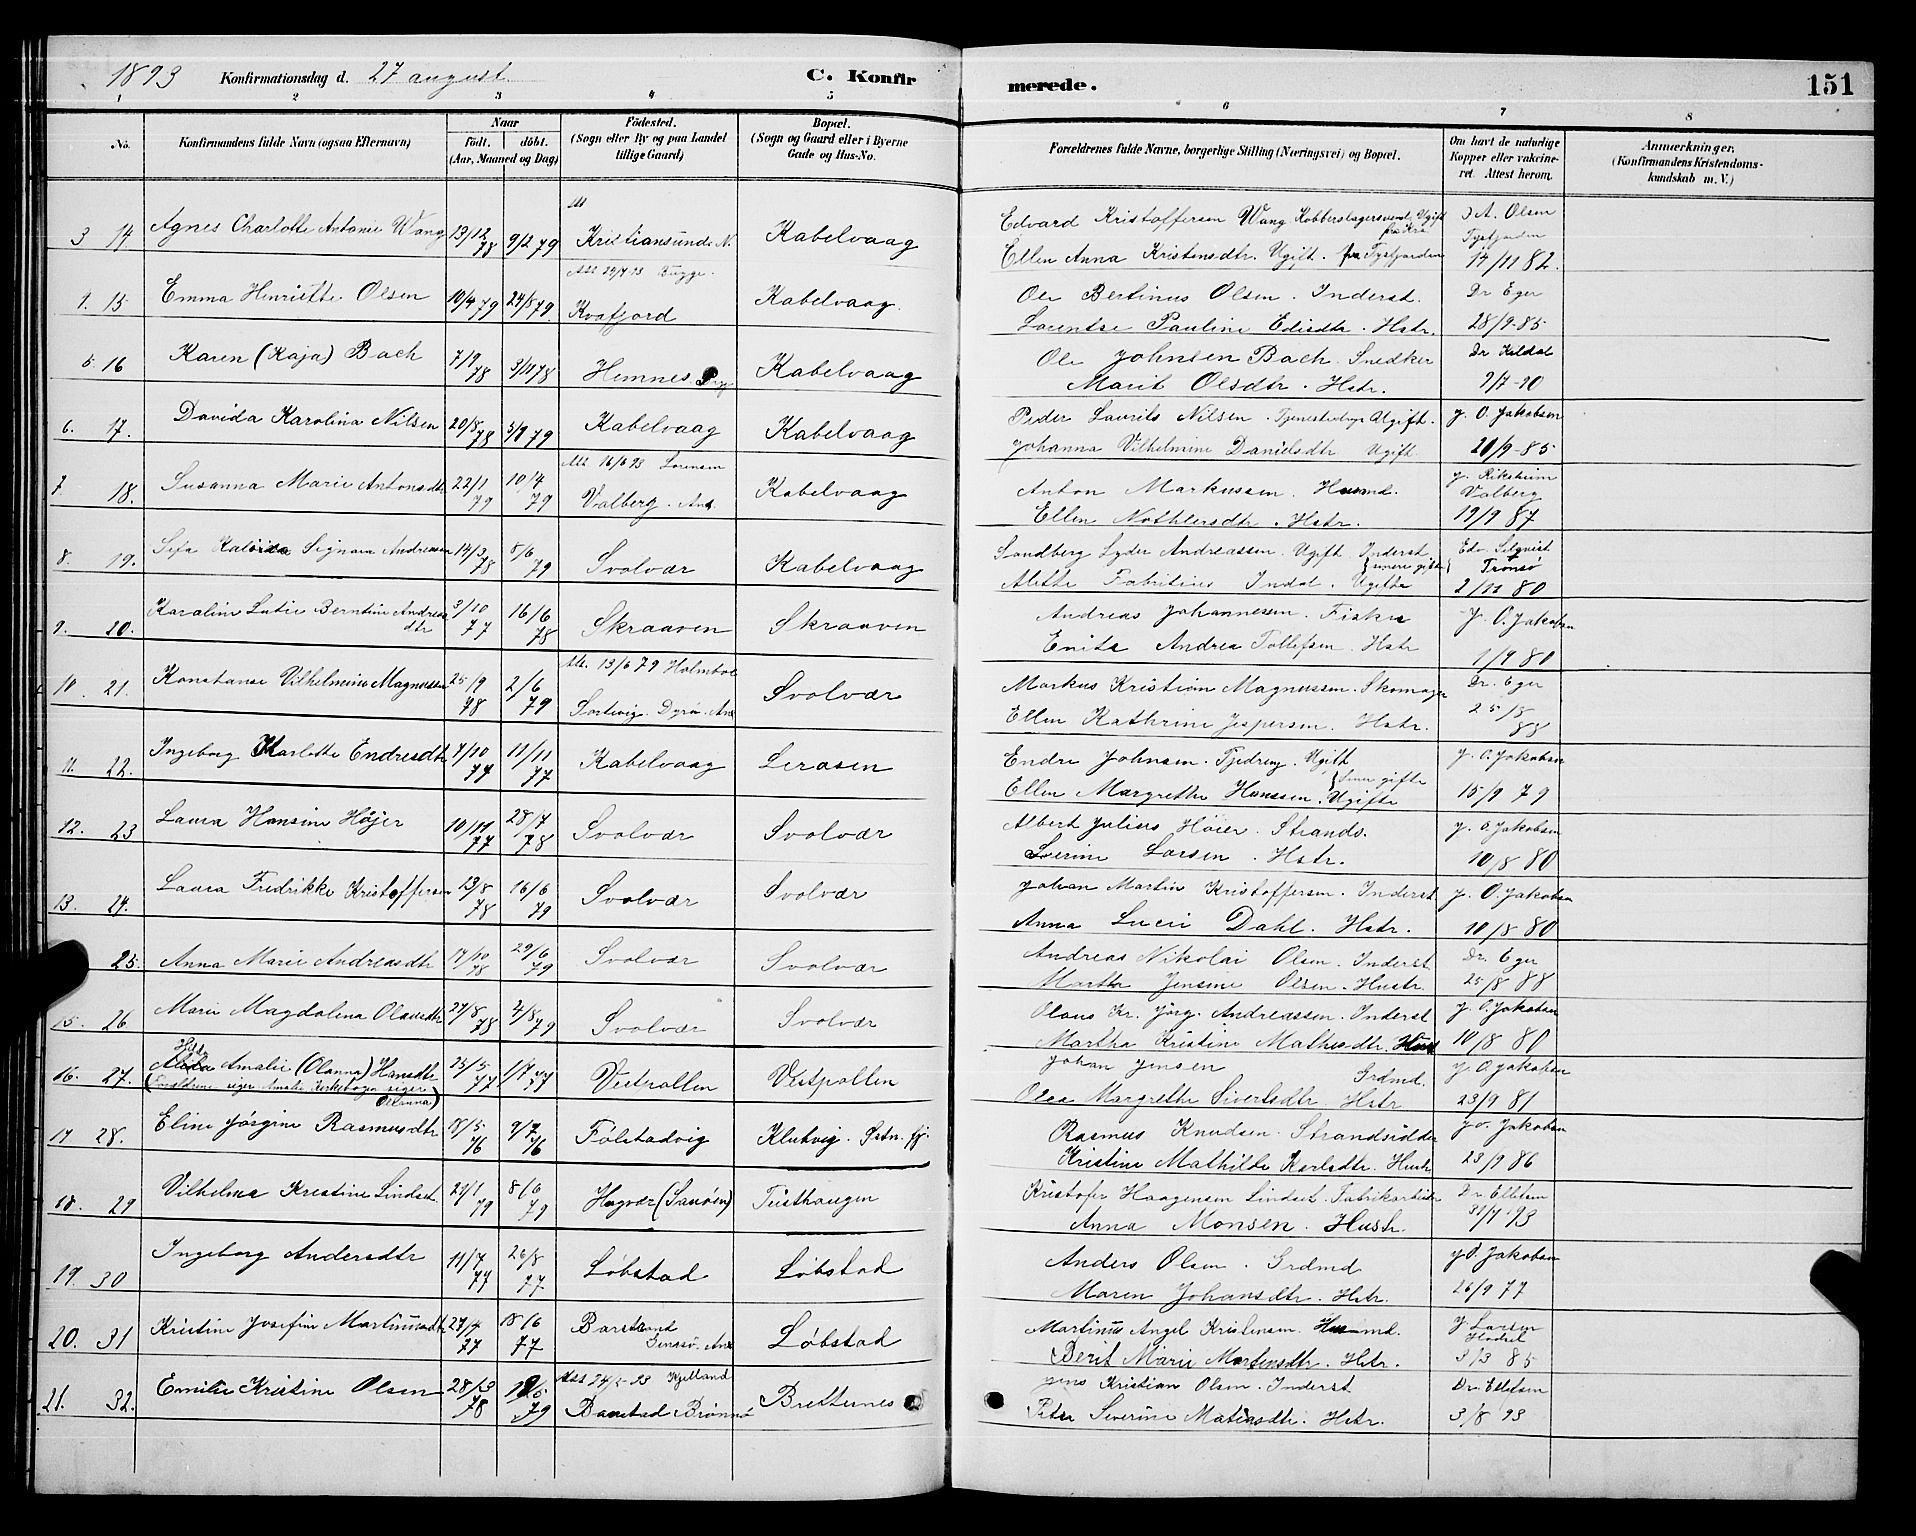 1893 Konfirmationsdag d. 27 august. C. Konfirmerede. 151
1 2 3 4 5 6 7 8
No. Konfirmandens fulde Navn (ogsaa Efternavn) Naar Födt. döbt. (Aar, Maaned og Dag) Födested. (Sogn eller By og paa Landet tillige Gaard) Bopæl. (Sogn og Gaard eller i Byerne Gade og Hus-No. Forældrenes fulde Navne, borgerlige Stilling (Næringsvei) og Bopæl. Om havt de naturlige Kopper eller vakcineret. Attest herom. Anmærkninger. (Konfirmandens Kristendomskundskab m. V.)
3 14 Agnes Charlotte Antonie Wang 13/12 78 9/2 79 Att Kristiansund N. Kabelvaag Edvard Kristoffersen Wang Kobberslagersvend Ugift
Ellen Anna Kristensdtr. Ugift. fra Tysfjorden A. Olsen Tysfjorden 14/11 82.
9. 15 Emma Henriette Olsen 10/4 79 24/8 79. Att 29/7 93 Bugge. Kvæfjord Kabelvaag. Ole Bertinus Olsen. Inderst.
Laurentse Pauline Edisdtr. Hstr. Dr Eger 28/9-85
5 16 Karen (Kaja) Bach 7/9 78 3/11 78 Hemnes Kabelvaag Ole Johnsen Bach. Snedker
Marit Olsdtr. Hstr. Dr Kildal 9/7-90
6. 17. Davida Karolina Nilsen 20/8 78 5/9 79 Kabelvaag Kabelvaag Peder Laurits Nilsen. Ugift.
Johanna Vilhelmine Danielsdtr Ugift J. O. Jakobsen 20/9-85
7. 18. Susanna Marie Antonsdtr 22/1 79 10/4 79 Att 16/6 93 Sörensen Valberg. Anx. Kabelvaag Anton Markussen. Husmd.
Ellen Nothlersdtr. Hstr. J. Riksheim Valberg 19/9 87
8. 19. Signora Andreasen 14/3 78 8/6 79 Svolvær Kabelvaag Sandberg Lyder Andreassen. Ugift Inderst.
Alette Fabritius Indal. Ugifte (senere gifte) Edv. Selqvist Tromsø 2/11 80
9. 20. Karoline Lutie Berntine Andreasdtr 3/10 77 16/6 78 Skraaven Skraaven Andreas Johannessen. Fisker
Enita Andrea Tollefsen. Hstr J. O. Jakobsen 1/9 80
10. 21. Konstanse Vilhelmine Magnussen 25/9 78 2/6 79 Att. 13/6 79 Holmboe Dyrö. Anx Svolvær Markus Kristian Magnussen. Skomager
Ellen Kathrine Jespersen. Hstr. Dr. Eger 25/8 88
11. 22. Ingeborg Karlotte Endresdtr 7/10 77 11/11 77 Kabelvaag Leraasen Endre Johnsen. Tjedreng. Ugift
Ellen Margrethe Hanssen. Ugifte (senere gifte) J. O. Jakobsen 15/9 79
12. 23 Laura Hansine Höjer 10/11 77 28/7 78 Svolvær Svolvær Albert Julius Höier. Strands.
Severine Larsen. Hstr. J. O. Jakobsen 10/8 80
13. 24. Laura Fredrikke Kristoffersen 13/8 78 16/6 79 Svolvær Svolvær Johan Martin Kristoffersen. Inderst
Anna Lucie Dahl. Hstr. J. O. Jakobsen 10/8 80
25. Anna Marie Andreasdtr 17/10 78 29/6 79 Svolvær Svolvær Andreas Nikolai Olsen. Inderst
Martha Jensine Olsen. Hustr. Dr. Eger 25/8 88
15. 26 Marie Magdalena Olausdtr 27/8 78 2/8 79 Svolvær Svolvær Olaus Kr. Jörg. Andreassen. Inderst
Martha Kristine Mathisdtr. Hust J. O. Jakobsen 10/8 80
16. 27. Amalie (Olanna) Hansdtr 25/5 77 1/7 77 Vestpollen Vestpollen Johan Jensen Grdmd.
(Forældrene siger Amalie Kirkebogen siger Olanna) Olea Margrethe Sivertsdtr. Hstr J. O. Jakobsen 23/9 81
17 28. Eline Jörgine Rasmusdtr 18/5 76 9/7 76 Fölstadvig Klutvig. Östn. fj. Rasmus Knudsen. Strandsidder
Kristine Mathilde Karlsdtr. Hustr J. O. Jakobsen 23/9 86
18. 29 Vilhelma Kristine Lindset. 29/1 79 8/6 79 Hagvær (Sanöen) Teisthaugen Kristofer Haagensen Lindset. Fabrikarbeider
Anna Monsen. Hustr. Dr. Ellefsen 31/7 93
19. 30 Ingeborg Andersdtr 11/7 77 26/8 77 Löbstad Löbstad Anders Olsen. Grdmd
Maren Johansdtr. Hstr. J. O. Jakobsen 26/9 77
20. 31 Kristine Josefine Martinusdtr 27/4 77 18/6 77 Barstrand Gimsö. Anx Löbstad Martinus Angel Kristensen. Husmd.
Berit Marie Mortensdtr. Hstr. J Larsen Hadsel 3/3 85
21. 32. Emilie Kristine Olsen 28/12 78 19/5 79 Att 24/5-93 Kjelland Baustad Brönnö Brettesnes Jens Kristian Olsen. Inderst
Petra Severine Matiasdtr. Hstr. Dr. Ellefsen 3/8 93